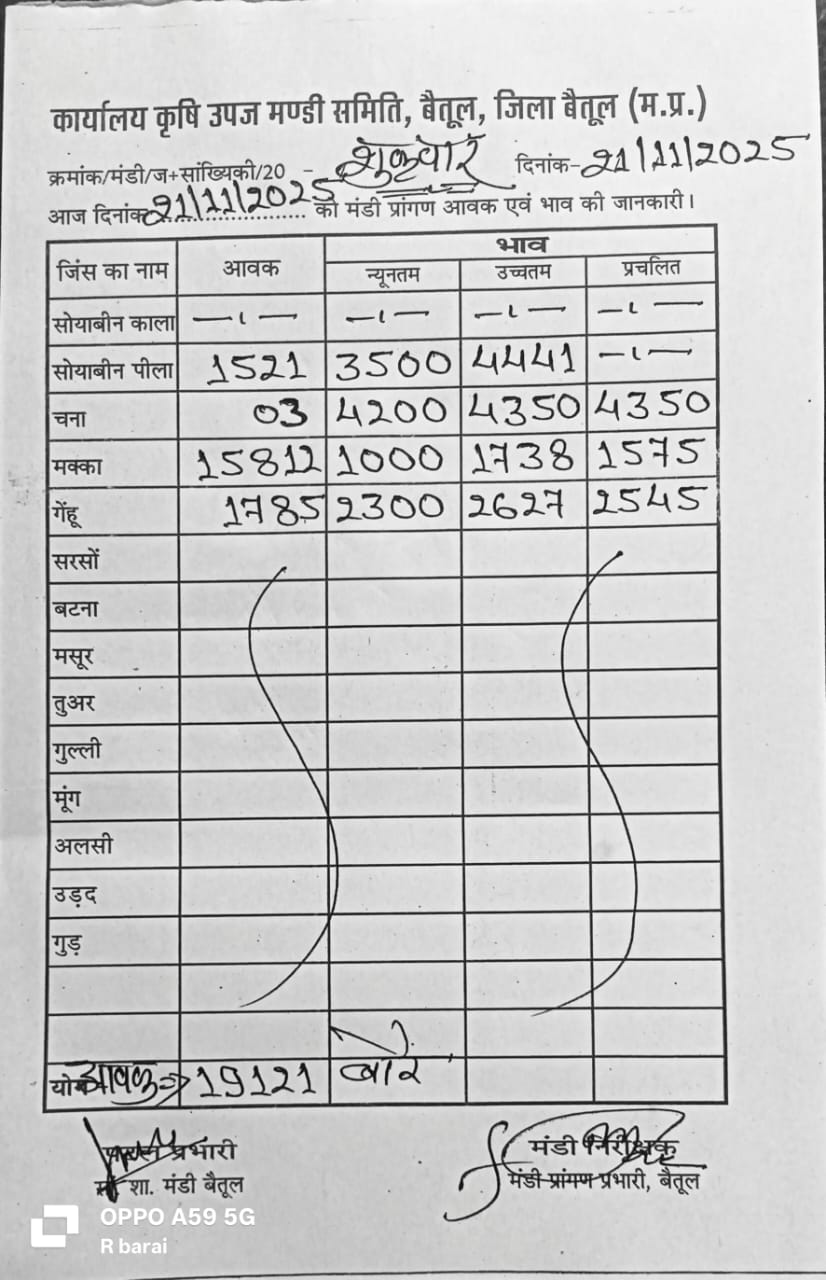 कार्यालय कृषि उपज मण्डी समिति, बैतूल, जिला बैतूल (म.प्र.)
क्रमांक/मंडी/ज+सांख्यिकी/20 - शुक्रवार दिनांक- 21/11/2025
आज दिनांक 21/11/2025 को मंडी प्रांगण आवक एवं भाव की जानकारी।
भाव
जिंस का नाम आवक न्यूनतम उच्चतम प्रचलित
सोयाबीन काला —ι— —ι— —ι— —ι—
सोयाबीन पीला 1521 3500 4441 —ι—
चना 03 4200 4350 4350
मक्का 15812 1000 1738 1575
गेंहू 1785 2300 2627 2545
सरसों
बटना
मसूर
तुअर
गुल्ली
मूंग
अलसी
उड़द
गुड़
योग आवक 19121 बोरे
प्रभारी मंडी निरीक्षक
शा. मंडी बैतूल मंडी प्रांगण प्रभारी, बैतूल
OPPO A59 5G
R barai